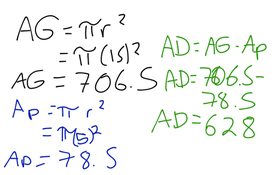 AG = πr²
= π(15)²
AG = 706.5
Ap = πr²
= π(5)²
Ap = 78.5
AD = AG - Ap
AD = 706.5-
78.5
AD = 628